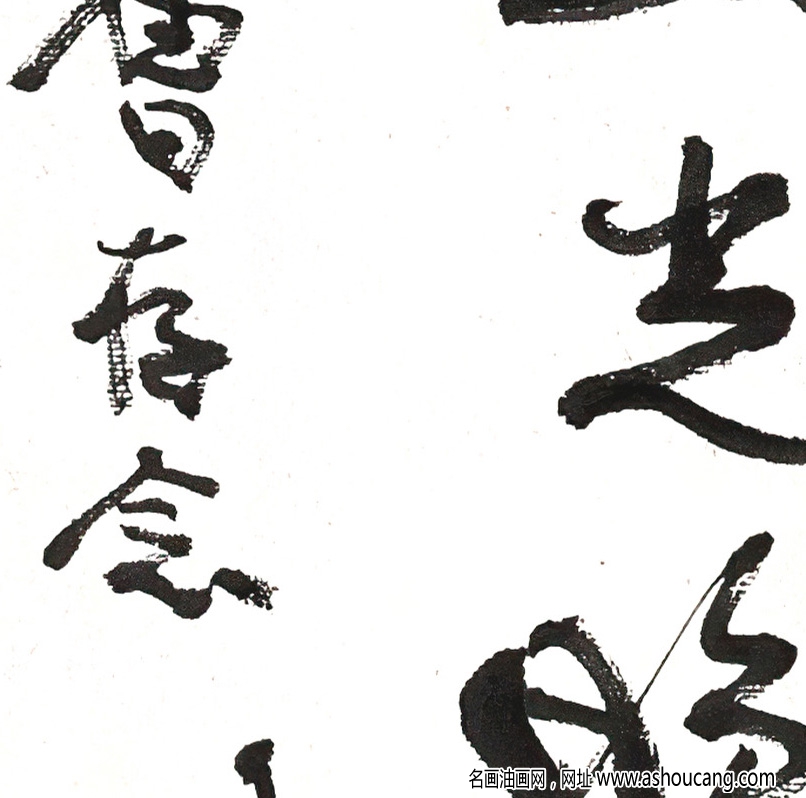 光
會存念
名画油画网，网址 www.ashoucang.com